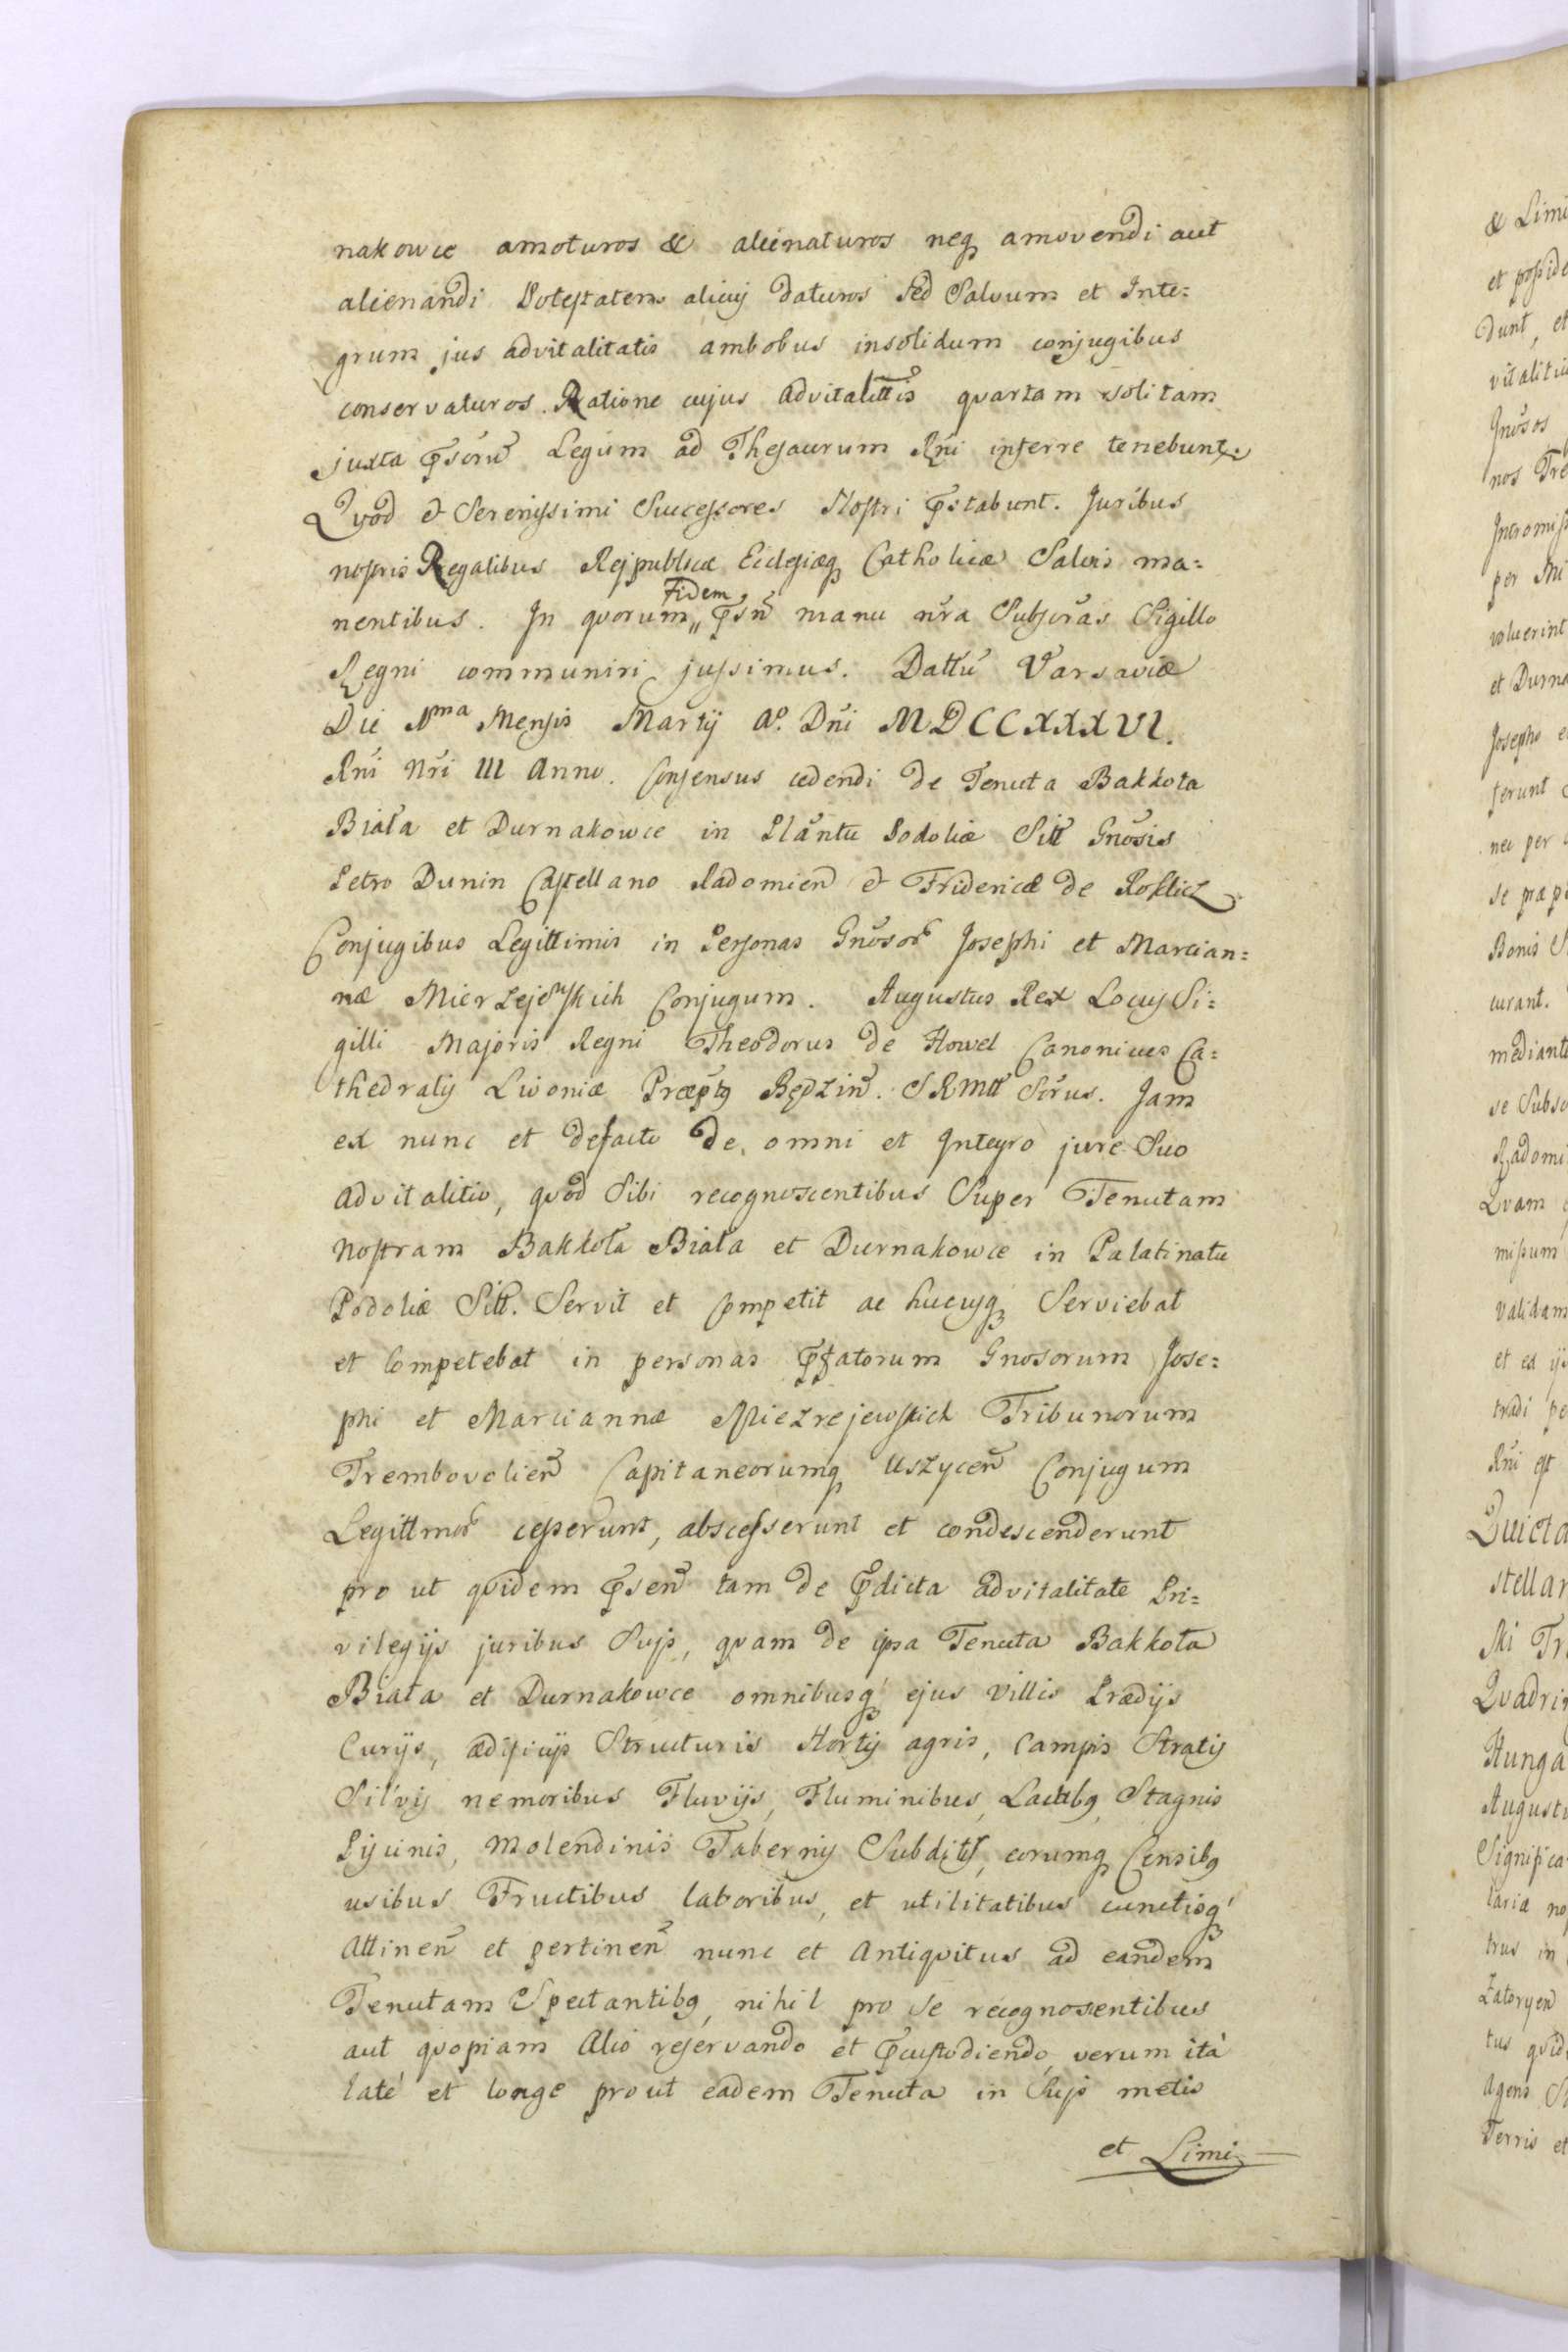 nakowce amoturos & alienaturos neq amovendi aut
alienandi Potestatem alicuj daturos sed Salvum et Inte=
grum jus advitalitatis ambobus insolidum conjugibus
conservaturos. Ratione cujus advitalittis quartam solitam
juxta pscru Legum ad Thesaurum Rni inferre tenebunt.
Quod & Serenissimi Successores Nostri pstabunt. Juribus
nostris Regalibus Reipublicæ Ecclesiæq Catholicæ Salvis ma=
nentibus. In quorum Fidem psn manu nra Subscras Sigillo
Regni communiri jussimus. Dattu Varsaviæ
Die Mensis Martij Ao. Dni MDCCXXXVI.
Rni Nri III Anno. Consensus cedendi de Tenuta Bakkota
Biała et Durnakowce in Plantu Podoliæ Sitt Gnosis
Petro Dunin Castellano Radomien & Fridericæ de Rostlicz
Conjugibus Legittimis in Personas Gnosor Josephi et Marcian=
næ Mierzejewskich Conjugum. Augustus Rex Locus Si=
gilli Majoris Regni Theodorus de Howel Canonicus Ca=
thedralis Livoniæ Præptq Będzin. SRMtt Scrus. Jam
ex nunc et defacto de omni et Integro jure Suo
advitalitio, quod Sibi recognoscentibus Super Tenutam
nostram Bakkota Biała et Durnakowce in Palatinatu
Podoliæ Sitt. Servit et Competit ac hucusq Serviebat
et Competebat in personas pfatorum Gnosorum Jose=
phi et Marciannæ Miezrejewskich Tribunorum
Trembovolien Capitaneorumq Uszycen Conjugum
Legittmor cesserunt, abscesserunt et condescenderunt
pro ut quidem psen tam de pdicta advitalitate Pri=
vilegijs juribus Sujs, quam de ipsa Tenuta Bakkota
Biała et Durnakowce omnibusq ejus villis Prædijs
Curijs, ædificijs Structuris Hortis agris, Campis Stratis
Silvis nemoribus Fluvijs, Fluminibus, Lacubq Stagnis
Piscinis, Molendinis Tabernis Subditis, eorumq Censibq
usibus Fructibus laboribus, et utilitatibus cunctisq
Attinen et pertinen nunc et Antiquitus ad eandem
Tenutam Spectantibq, nihil pro se recognosentibus
aut quopiam Alio reservando et pcustodiendo, verum ità
latè et longe prout eadem Tenuta in Sujs metis
et Limi

& Limi
dunt, et
vitaliti
Gnosos
nos Tre
Intromiss
per Mi
voluerint
et Durna
Josepho
ferunt
nec per
se præp
Bonis
curant.
mediante
se Subsc
Radomi
Quam
missum
validam
et ex
tradi pe
Rni
Quieta
stellan
Quadrin
Hunga
August
Significa
lariæ no
trus in
Zatoryen
tus quid
Agens
Terris et